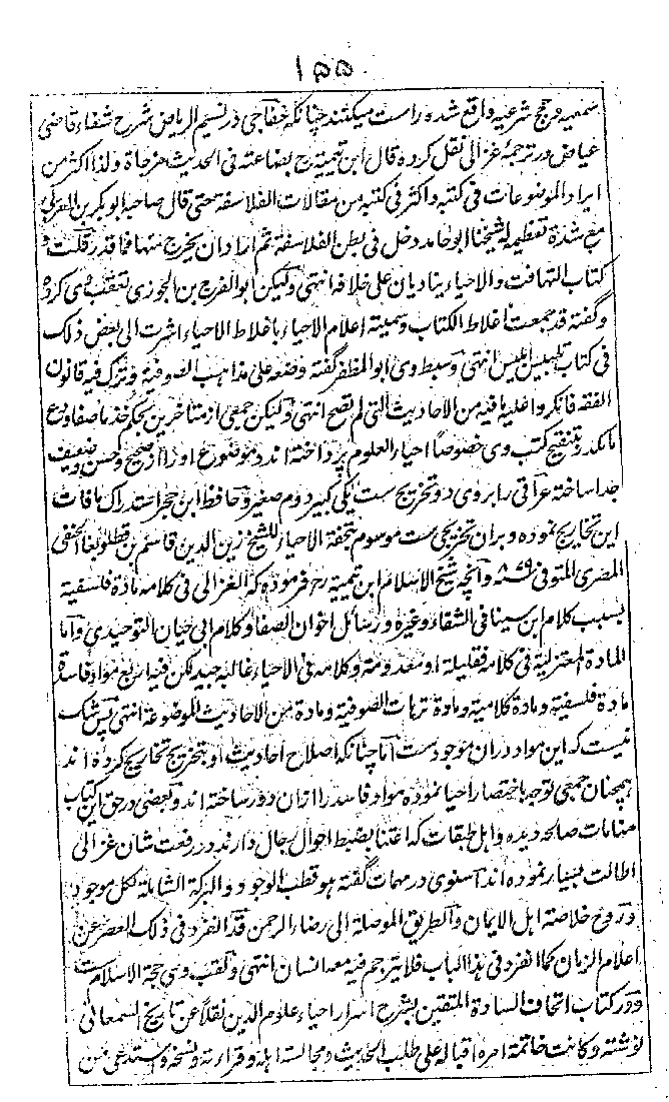 ۱۵۵
سمعیه و حج شرعیه واقع شده راست میکنند چنانکه خفاجی در نسیم الریاض شرح شفاء قاضی
عیاض در ترجمهٔ غزالی نقل کرده قال ابن تیمیة رح بضاعته فی الحدیث مزجاة ولذا اکثر من
ایراد الموضوعات فی کتبه واکثر فی کتبه من مقالات الفلاسفة حتی قال صاحبه ابو بکر بن العربی
مع شدة تعظیمه له شیخنا ابو حامد دخل فی بطن الفلاسفة ثم اراد ان یخرج منها فما قدر قلت و
کتاب التهافت والاحیاء ینادیان علی خلافه انتهی ولیکن ابو الفرج بن الجوزی تعقب وی کرده
و گفته قد جمعت اغلاط الکتاب وسمیته اعلام الاحیاء باغلاط الاحیاء اشرت الی بعض ذلک
فی کتاب تلبیس ابلیس انتهی و سبط وی ابو المظفر گفته وضعه علی مذاهب الصوفیة وترک فیه قانون
الفقه فانکروا علیه ما فیه من الاحادیث التی لم تصح انتهی ولیکن جمعی از متاخرین بحکم خذ ما صفا ودع
ما کدر بتنقیح کتب وی خصوصاً احیاء العلوم پرداخته اند و موضوع او را از صحیح و حسن و ضعیف
جدا ساخته عراقی را بر وی دو تخریج ست یکی کبیر دوم صغیر و حافظ ابن حجر استدراک ما فات
این تخاریج نموده و بران تخریجی ست موسوم بتحفة الاحیاء للشیخ زین الدین قاسم بن قطلوبغا الحنفی
المصری المتوفی ۸۷۹ و آنچه شیخ الاسلام ابن تیمیة رح فرموده که الغزالی فی کلامه مادة فلسفیة
بسبب کلام ابن سینا فی الشفاء وغیره ورسائل اخوان الصفا وکلام ابی حیان التوحیدی واما
المادة المعتزلیة فی کلامه فقلیلة او معدومة وکلامه فی الاحیاء غالبه جید لکن فیه اربع مواد فاسدة
مادة فلسفیة ومادة کلامیة ومادة ترهات الصوفیة ومادة من الاحادیث الموضوعة انتهی پس شک
نیست که این مواد دران موجود ست اما چنانکه اصلاح احادیث او بتخریج تخاریج کرده اند
همچنان جمعی توجه باختصار احیا نموده مواد فاسد را ازان دور ساخته اند و بعضی در حق این کتاب
منامات صالحه دیده و اهل طبقات که اعتنا بضبط احوال رجال دارند در رفعت شان غزالی
اطالت بسیار نموده اند اسنوی در مهمات گفته هو قطب الوجود والبرکة الشاملة لکل موجود
وروح خلاصة اهل الایمان والطریق الموصلة الی رضاء الرحمن قد انفرد فی ذلک العصر عن
اعلام الزمان کما انفرد فی هذا الباب فلا یترجم فیه معه انسان انتهی ولقب وی حجة الاسلام ست
و در کتاب اتحاف السادة المتقین بشرح اسرار احیاء علوم الدین نقلاً عن تاریخ السمعانی
نوشته وکانت خاتمة امره اقباله علی طلب الحدیث ومجالسة اهله وقراءته ونسخه واستدعی من